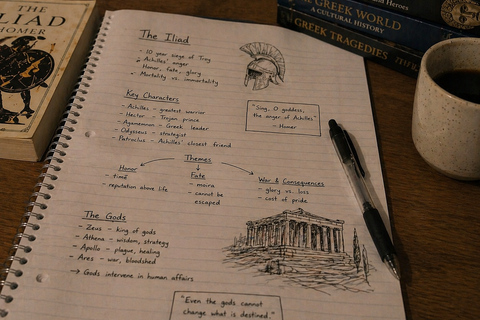 THE
ILIAD
HOMER
The Iliad
- 10 year siege of Troy
- Achilles' anger
Honor, fate, glory
- Mortality vs. immortality
Key Characters
- Achilles - greatest warrior
- Hector - Trojan prince
- Agamemnon - Greek leader
- Odysseus - strategist
- Patroclus - Achilles' closest friend
"Sing, O goddess,
the anger of Achilles"
- Homer
Themes
Honor
- timē
- reputation above life
Fate
- moira
- cannot be
escaped
War & Consequences
- glory vs. loss
- cost of pride
The Gods
- Zeus - king of gods
- Athena - wisdom, strategy
- Apollo - plague, healing
- Ares - war, bloodshed
→ Gods intervene in human affairs
"Even the gods cannot
change what is destined."
and Heroes
GREEK WORLD
A CULTURAL HISTORY
GREEK TRAGEDIES